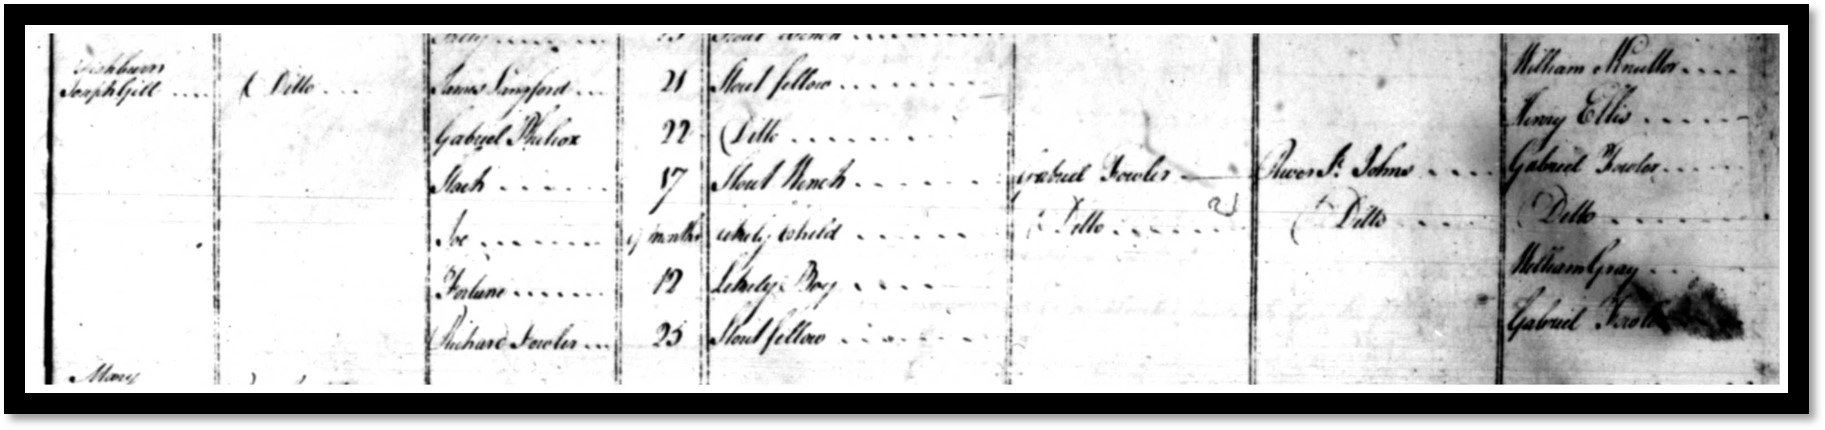 Stout Wench
Fishburn
Joseph Gill .... Ditto ... James Langford ... 21 Stout fellow ....... William Knutter ....
Gabriel Philcox 22 Ditto ....... Henry Ellis ......
17 Stout Wench ...... Gabriel Fowler River St. Johns .... Gabriel Fowler ....
Joe ........ months Likely Child ...... Ditto ....... Ditto .... Ditto .......
Fortune ...... 12 Likely Boy .... William Gray ...
Richard Fowler ... 25 Stout fellow ....... Gabriel
Mary